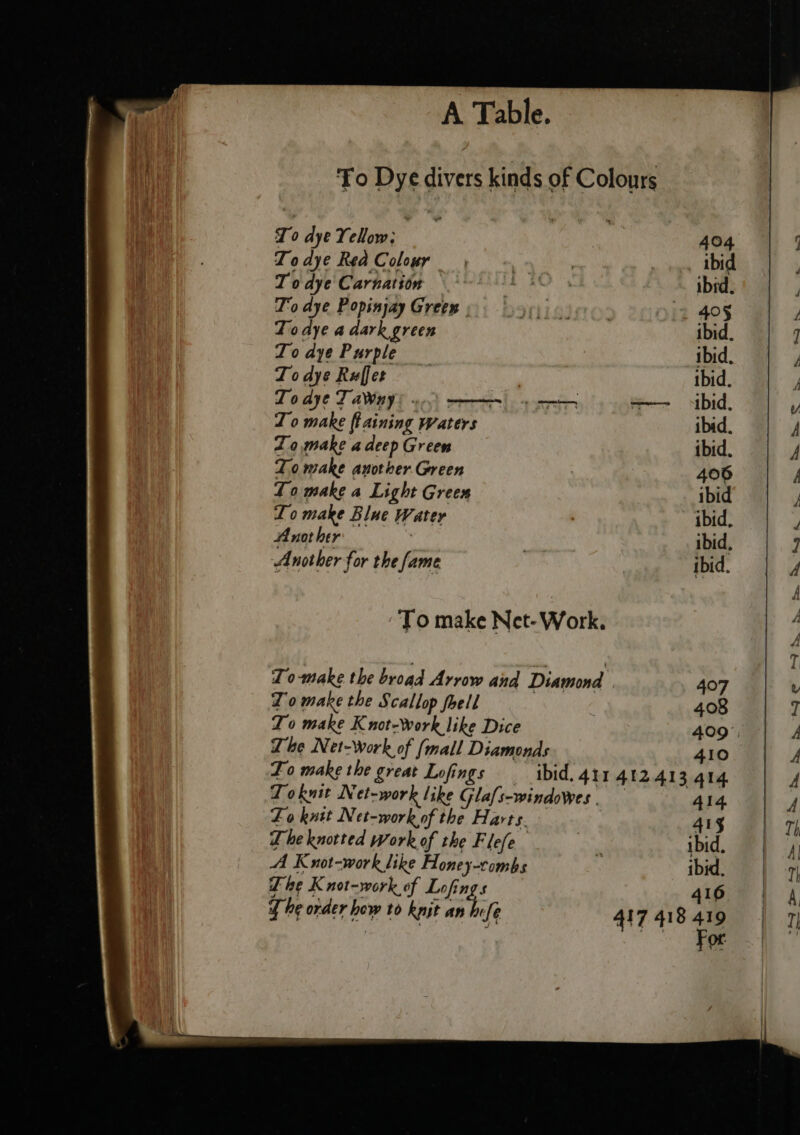 A Table.
To Dye divers kinds of Colours
To dye Yellow; 404
To dye Red Colour ibid
To dye Carnation ibid.
To dye Popinjay Green 405
To dye a dark green ibid.
To dye Purple ibid.
To dye Ruſſet ibid.
To dye Tawny ibid.
To make ſtaining Waters ibid.
To make a deep Green ibid.
To make another Green 406
To make a Light Green ibid
To make Blue Water ibid.
Another ibid.
Another for the ſame ibid.
To make Net-Work.
To make the broad Arrow and Diamond 407
To make the Scallop ſhell 408
To make Knot-work like Dice 409
The Net-work of ſmall Diamonds 410
To make the great Loſings ibid. 411 412 413 414
To knit Net-work like Glaſs-windowes. 414
To knit Net-work of the Harts. 415
The knotted work of the Fleſe ibid.
A Knot-work like Honey-combs ibid.
The Knot-work of Loſings 416
The order how to knit an hoſe 417 418 419
For